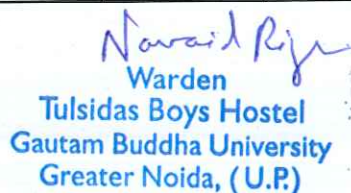 Navaid Riz
Warden
Tulsidas Boys Hostel
Gautam Buddha University
Greater Noida, (U.P.)